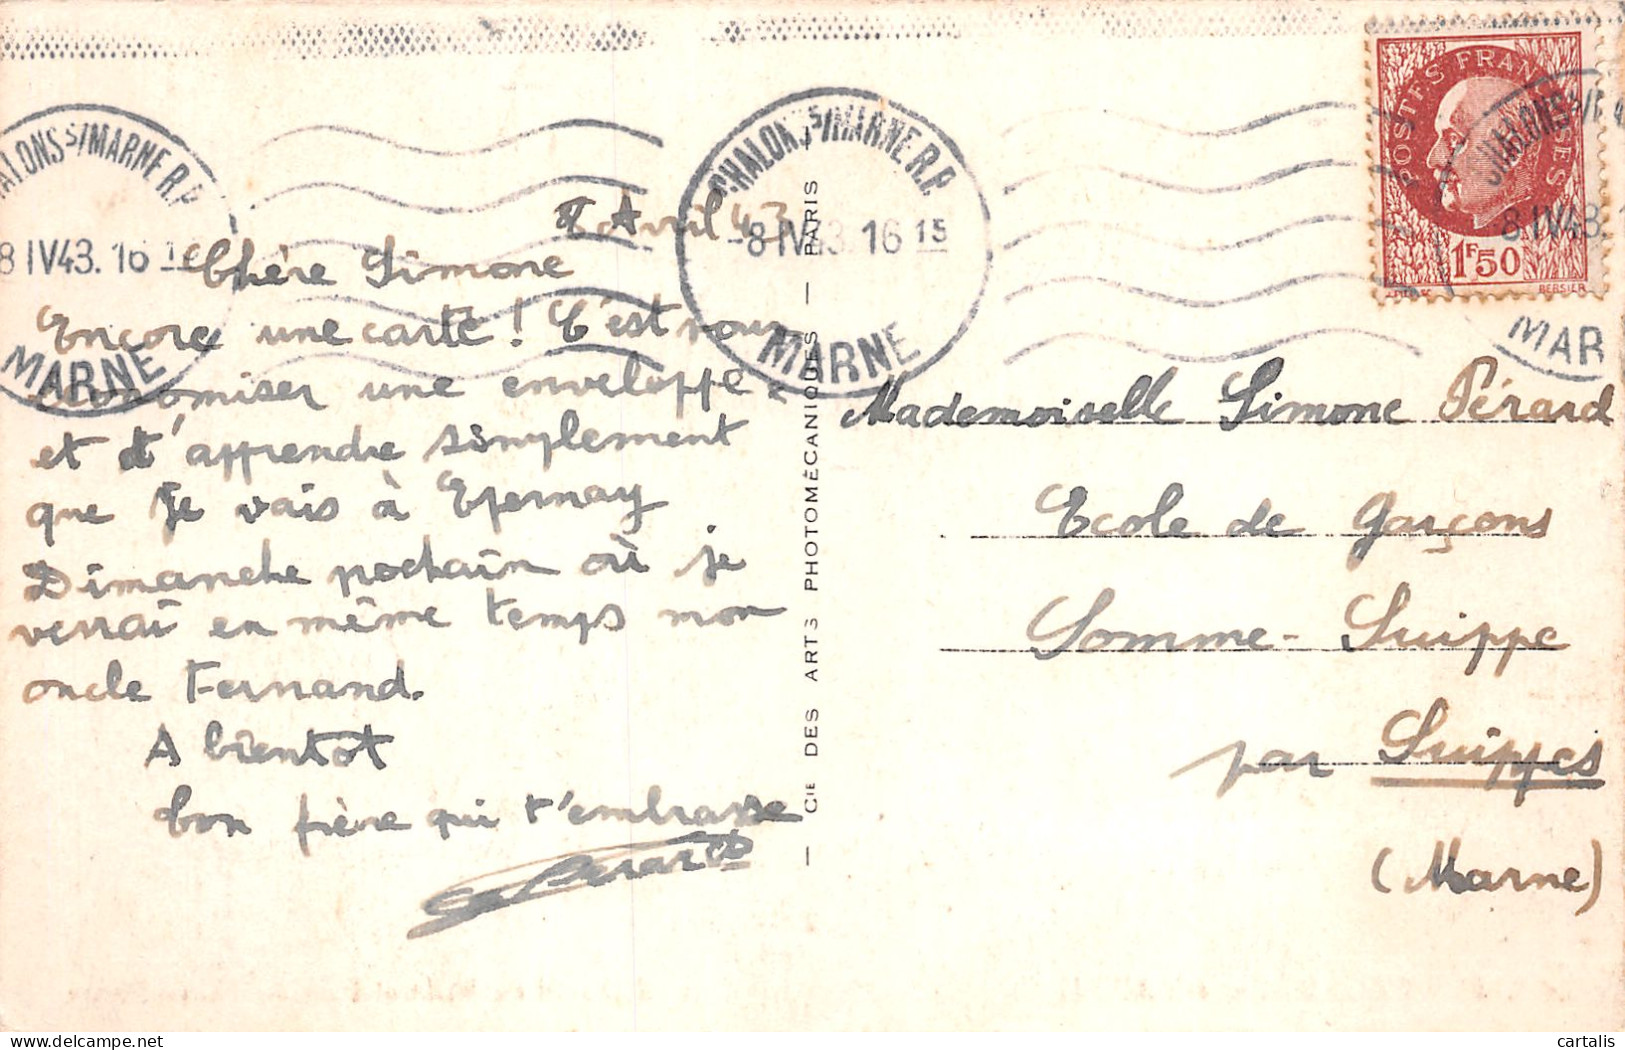 CHALONS S/MARNE R.P.
8 IV 43. 16 15
MARNE
CHALONS S/MARNE R.P.
-8 IV 43. 16 15
MARNE
POSTES FRANÇAISES
1F50
BERSIER
CHALONS S/
8 IV 43.
MAR
Avril 43
Chère Simone
Encore une carte ! C'est pour
économiser une enveloppe
et t'apprendre simplement
que je vais à Epernay
Dimanche prochain où je
verrai en même temps mon
oncle Fernand.
A bientôt
bon frère qui t'embrasse
CIE DES ARTS PHOTOMÉCANIQUES — PARIS
Mademoiselle Simone Pérard
Ecole de Garçons
Somme-Suippe
par Suippes
(Marne)
cartalis